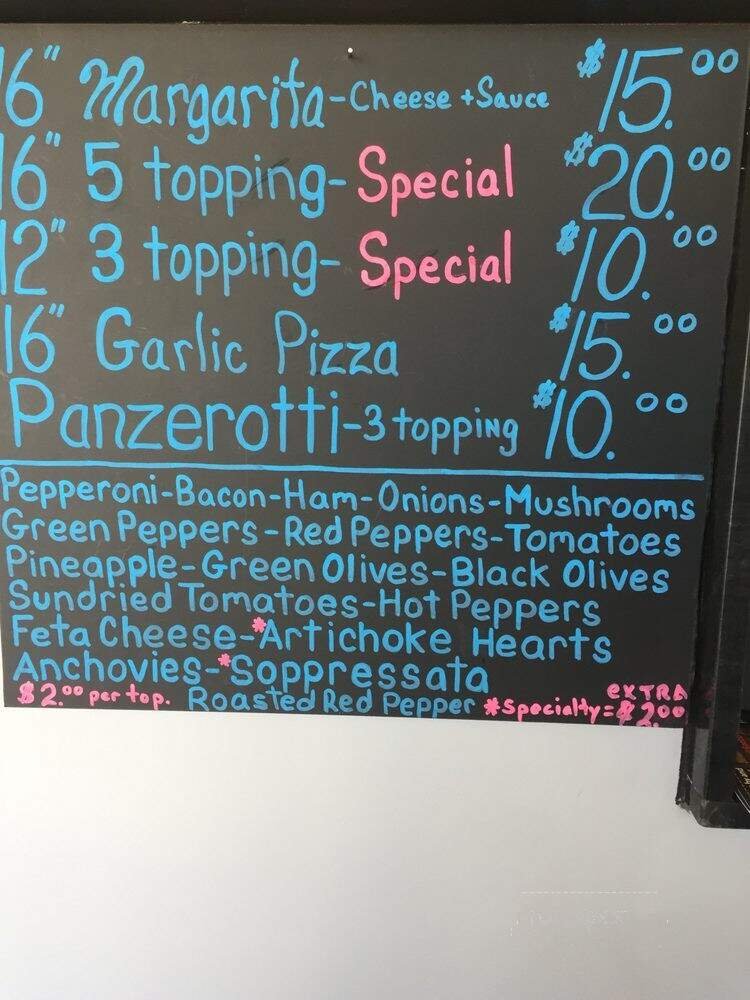 16" Margarita-Cheese + Sauce $15.00
16" 5 topping- Special $20.00
12" 3 topping- Special $10.00
16" Garlic Pizza $15.00
Panzerotti-3 topping $10.00
Pepperoni-Bacon-Ham-Onions-Mushrooms
Green Peppers-Red Peppers-Tomatoes
Pineapple-Green Olives-Black Olives
Sundried Tomatoes-Hot Peppers
Feta Cheese-*Artichoke Hearts
Anchovies-*Soppressata
$2.00 per top. Roasted Red Pepper *Specialty= EXTRA $2.00